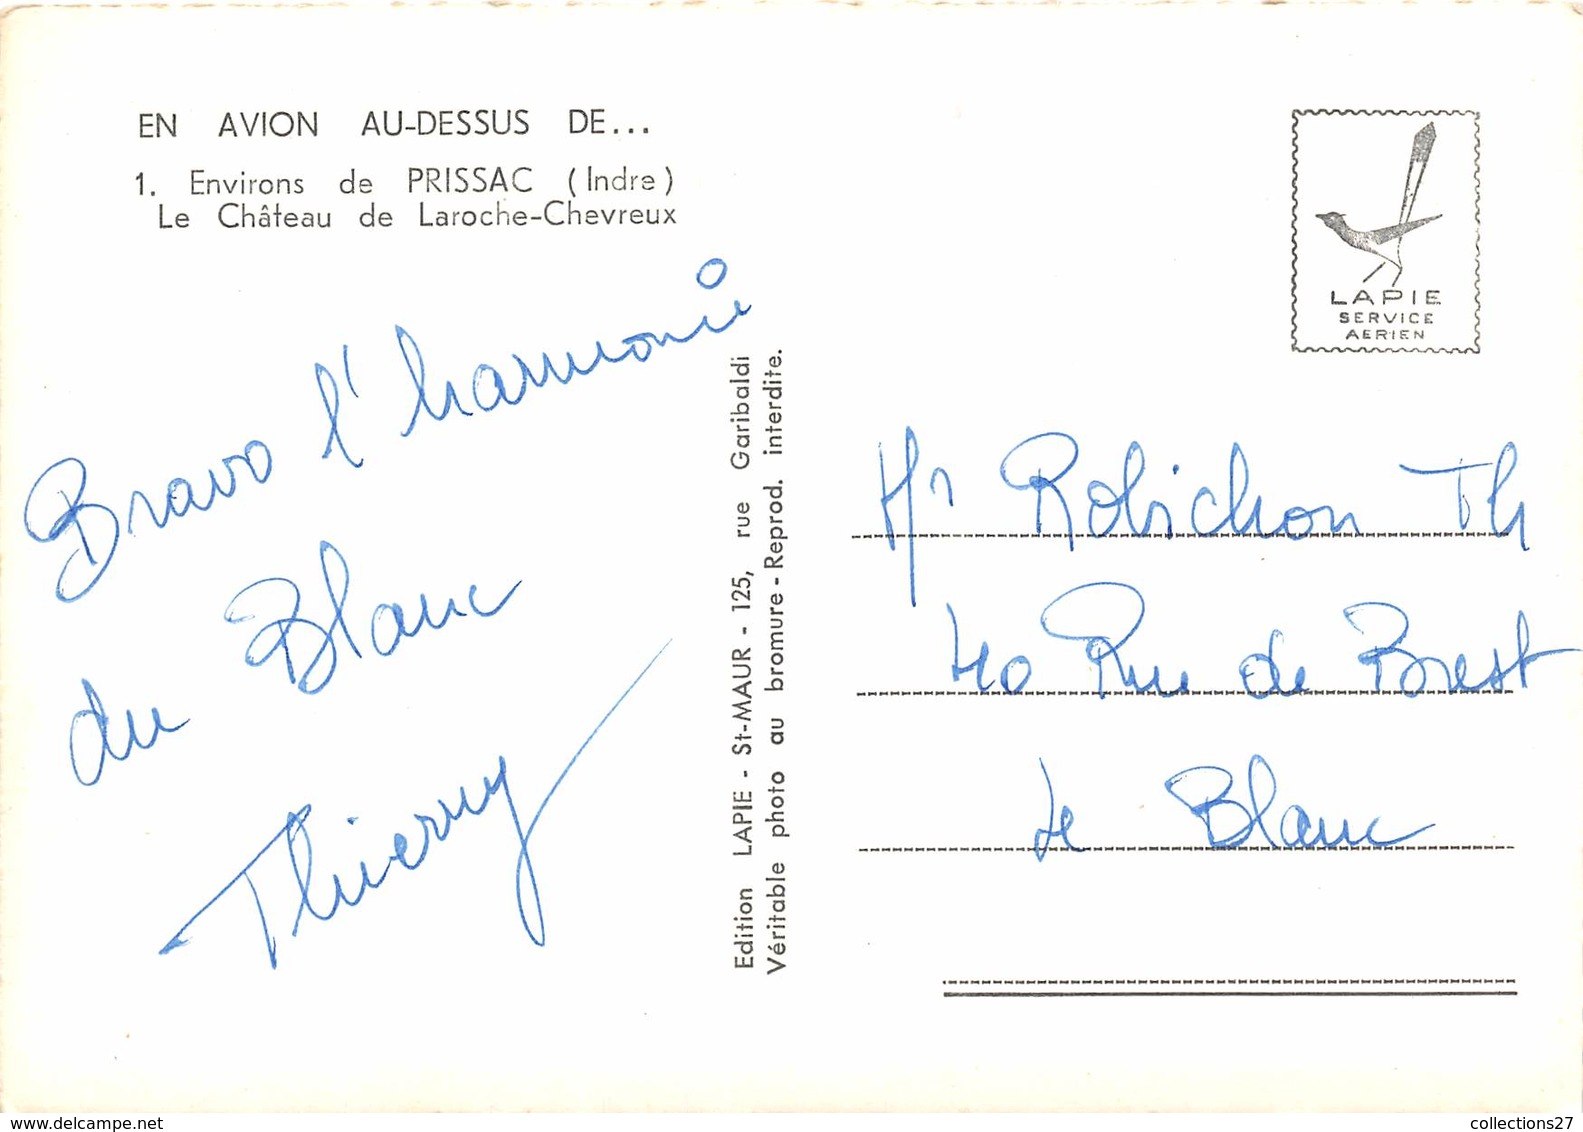 EN AVION AU-DESSUS DE...
1. Environs de PRISSAC (Indre)
Le Château de Laroche-Chevreux
Bravo l'harmonie
du Blanc
Thierry
Edition LAPIE - St-MAUR - 125, rue Garibaldi
Véritable photo au bromure - Reprod. interdite.
LAPIE
SERVICE
AERIEN
Mr Robichon Th
40 Rue de Brest
Le Blanc
www.delcampe.net
collections27